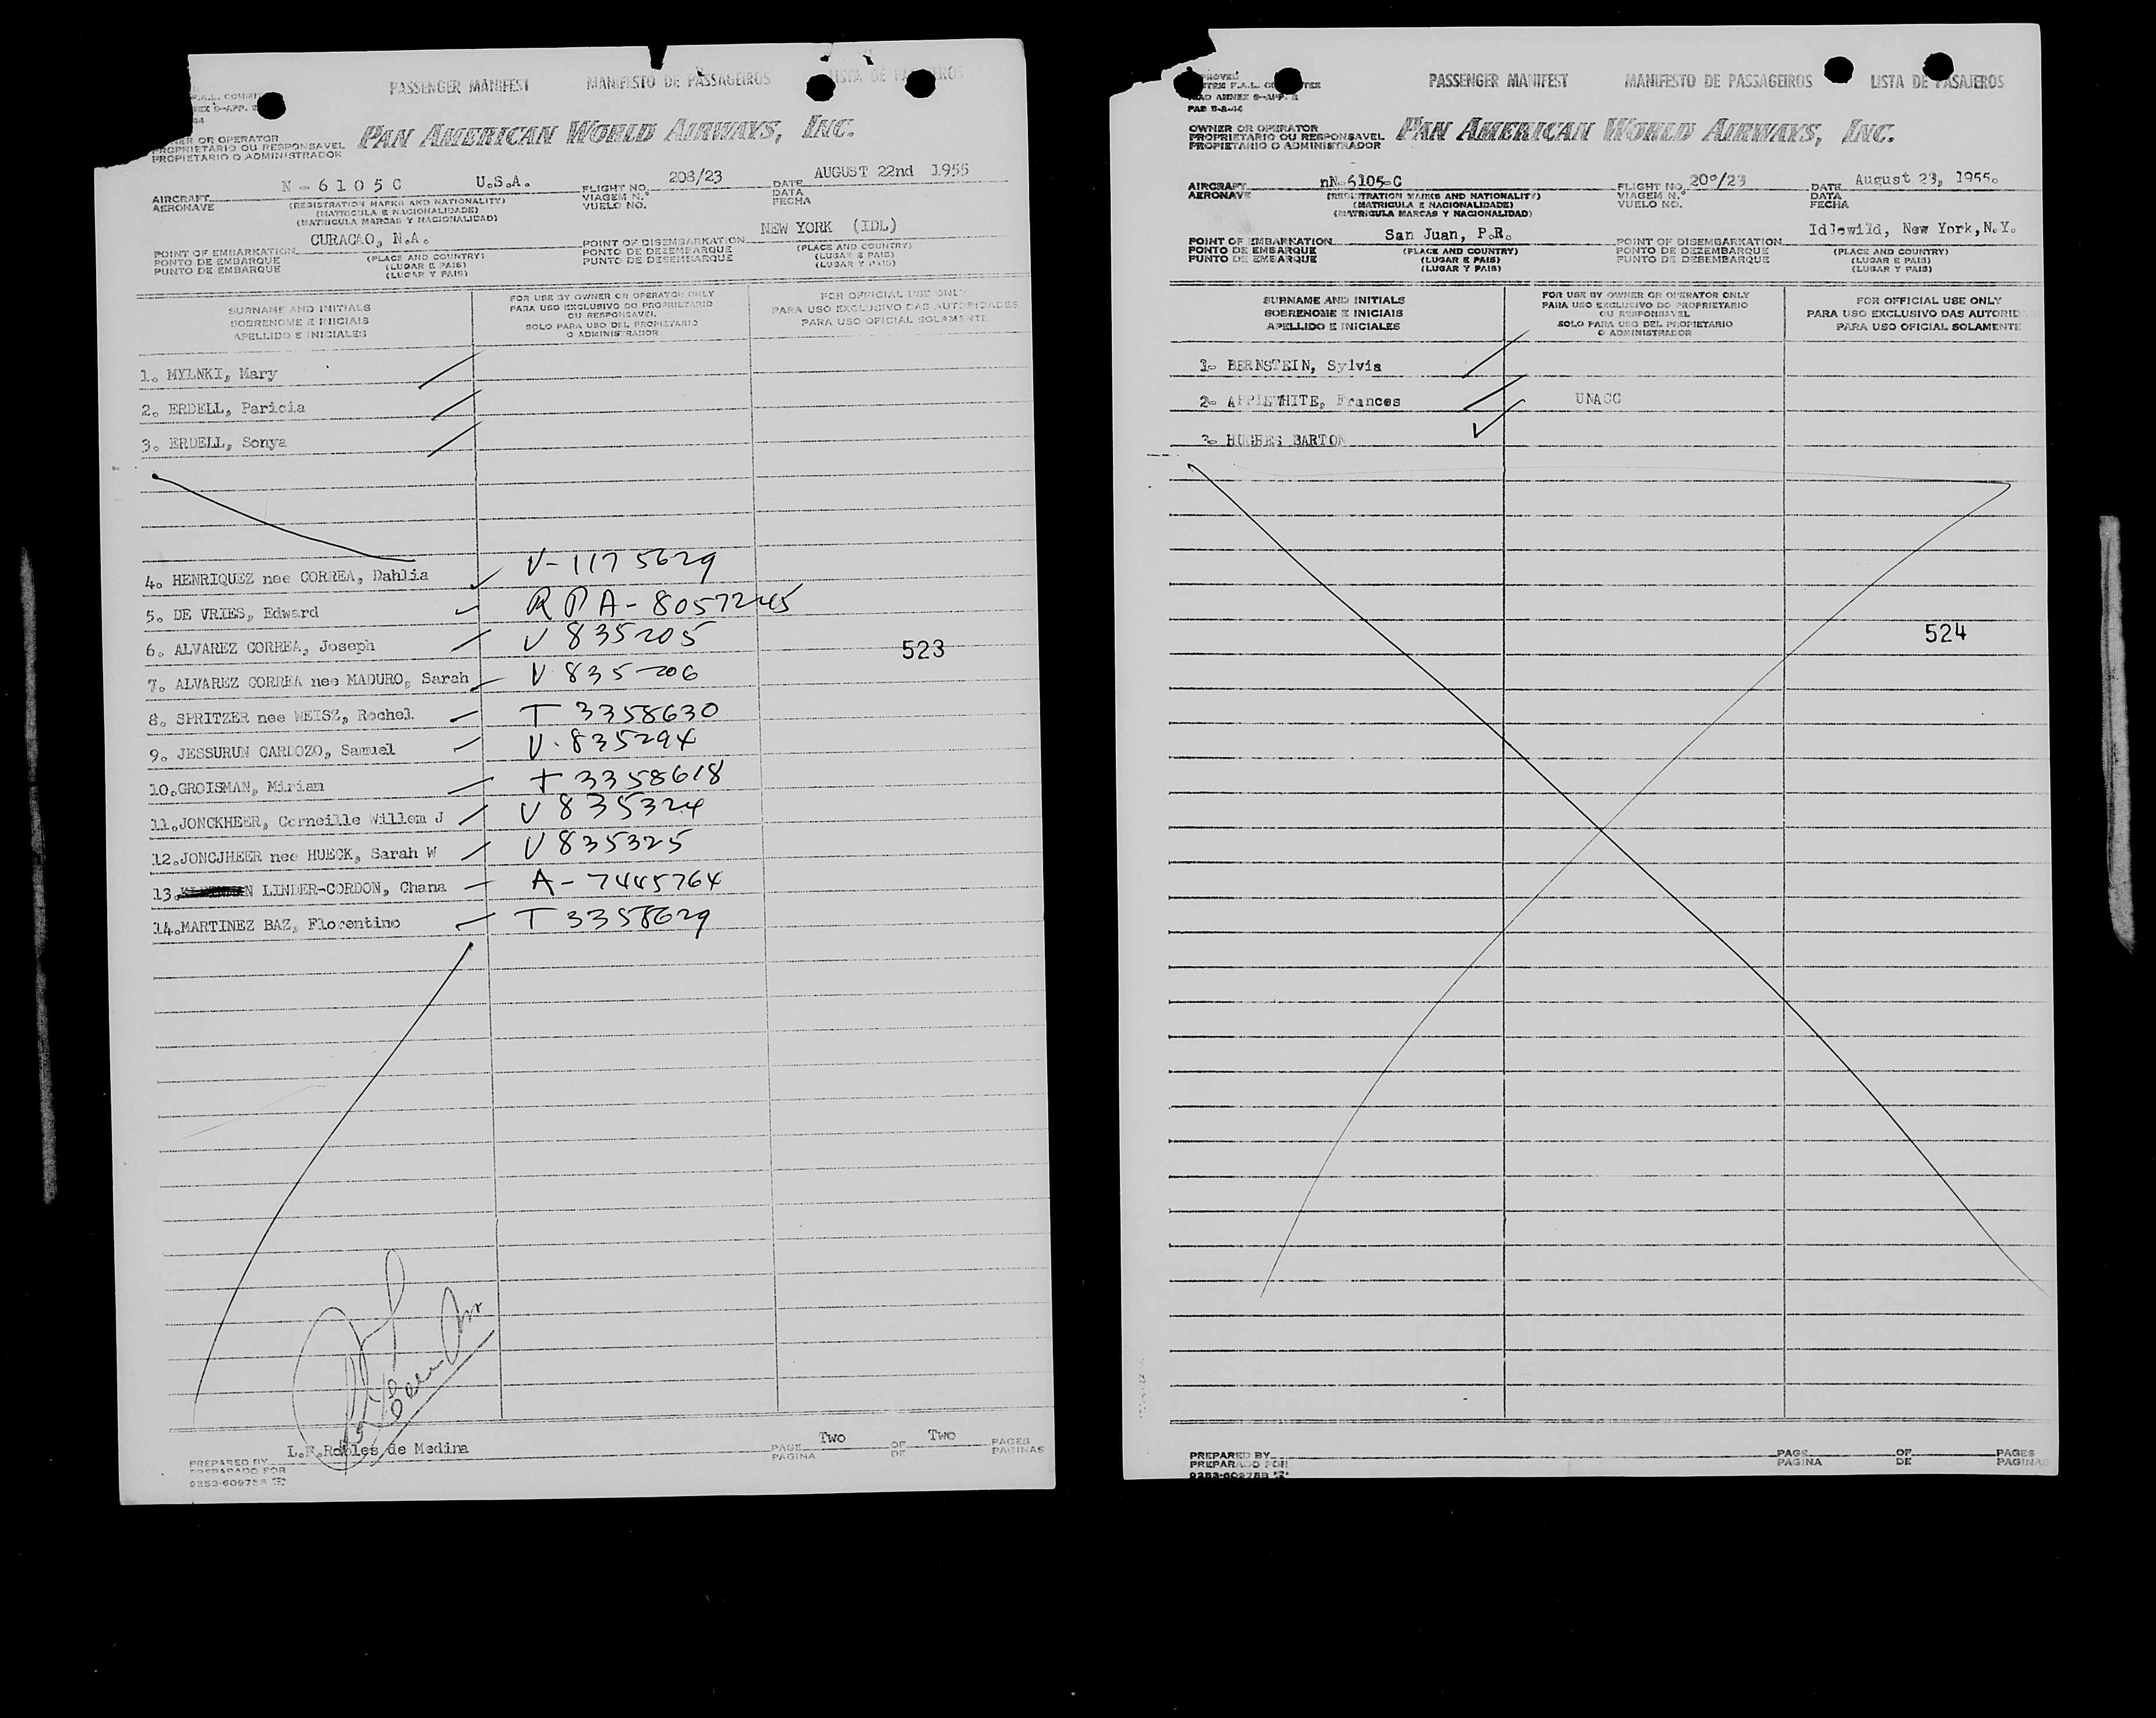 PASSENGER MANIFEST MANIFESTO DE PASSAGEIROS LISTA DE
OWNER OR OPERATOR
PROPRIETARIO OU RESPONSAVEL
PROPIETARIO O ADMINISTRADOR
PAN AMERICAN WORLD AIRWAYS, INC.
AIRCRAFT N-6105C U.S.A. FLIGHT NO. 208/23 DATE AUGUST 22nd 1955
AERONAVE (REGISTRATION MARKS AND NATIONALITY) VIAGEM N.° DATA
(MATRICULA E NACIONALIDADE) VUELO NO. FECHA
(MATRICULA MARCAS Y NACIONALIDAD)
POINT OF EMBARKATION CURACAO, N.A. POINT OF DISEMBARKATION NEW YORK (IDL)
PONTO DE EMBARQUE (PLACE AND COUNTRY) PONTO DE DEZEMBARQUE (PLACE AND COUNTRY)
PUNTO DE EMBARQUE (LUGAR E PAIS) PUNTO DE DESEMBARQUE (LUGAR E PAIS)
(LUGAR Y PAIS) (LUGAR Y PAIS)
SURNAME AND INITIALS
SOBRENOME E INICIAIS
APELLIDO E INICIALES
FOR USE BY OWNER OR OPERATOR ONLY
PARA USO EXCLUSIVO DO PROPRIETARIO
OU RESPONSAVEL
SOLO PARA USO DEL PROPIETARIO
O ADMINISTRADOR
FOR OFFICIAL USE ONLY
PARA USO EXCLUSIVO DAS AUTORIDADES
PARA USO OFICIAL SOLAMENTE
1. MYLNKI, Mary
2. ERDELL, Paricia
3. ERDELL, Sonya
4. HENRIQUEZ nee CORREA, Dahlia V-1175629
5. DE VRIES, Edward RPA-8057245
6. ALVAREZ CORREA, Joseph V 835205
523
7. ALVAREZ CORREA nee MADURO, Sarah V 835206
8. SPRITZER nee WEISZ, Rochel T 3358630
9. JESSURUN CARDOZO, Samuel V.835294
10.GROISMAN, Miriam T 3358618
11.JONCKHEER, Corneille Willem J V 835324
12.JONCJHEER nee HUECK, Sarah W V 835325
13. N LINDER-CORDON, Chana A-7445764
14.MARTINEZ BAZ, Florentino T 3358629
L.F.Robles de Medina
PREPARED BY PAGE Two OF Two PAGES
PREPARADO POR PAGINA DE PAGINAS
9253-60975B
PASSENGER MANIFEST MANIFESTO DE PASSAGEIROS LISTA DE PASAJEROS
OWNER OR OPERATOR
PROPRIETARIO OU RESPONSAVEL
PROPIETARIO O ADMINISTRADOR
PAN AMERICAN WORLD AIRWAYS, INC.
AIRCRAFT nN-6105-C FLIGHT NO. /23 DATE August 23, 1955.
AERONAVE (REGISTRATION MARKS AND NATIONALITY) VIAGEM N.° DATA
(MATRICULA E NACIONALIDADE) VUELO NO. FECHA
(MATRICULA MARCAS Y NACIONALIDAD)
POINT OF EMBARKATION San Juan, P.R. POINT OF DISEMBARKATION Idlewild, New York,N.Y.
PONTO DE EMBARQUE (PLACE AND COUNTRY) PONTO DE DEZEMBARQUE (PLACE AND COUNTRY)
PUNTO DE EMBARQUE (LUGAR E PAIS) PUNTO DE DESEMBARQUE (LUGAR E PAIS)
(LUGAR Y PAIS) (LUGAR Y PAIS)
SURNAME AND INITIALS
SOBRENOME E INICIAIS
APELLIDO E INICIALES
FOR USE BY OWNER OR OPERATOR ONLY
PARA USO EXCLUSIVO DO PROPRIETARIO
OU RESPONSAVEL
SOLO PARA USO DEL PROPIETARIO
O ADMINISTRADOR
FOR OFFICIAL USE ONLY
PARA USO EXCLUSIVO DAS AUTORID
PARA USO OFICIAL SOLAMENTE
1- BERNSTEIN, Sylvia
2- APPLEWHITE, Frances UNACC
3- HUGHES BARTON
524
PREPARED BY PAGE OF PAGES
PREPARADO POR PAGINA DE PAGINAS
9253-60975B